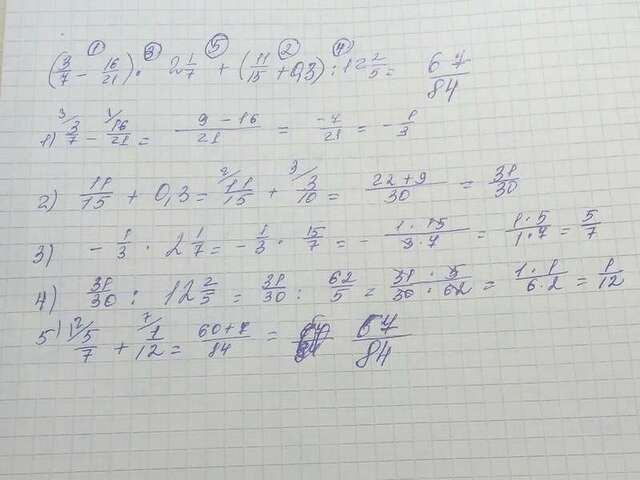 ① ③ ⑤ ② ④
(3/7 - 16/21) · 2 1/7 + (11/15 + 0,3) : 12 2/5 = 67/84
1) 3/7 - 16/21 = (9 - 16)/21 = -7/21 = - 1/3
2) 11/15 + 0,3 = 11/15 + 3/10 = (22 + 9)/30 = 31/30
3) - 1/3 · 2 1/7 = - 1/3 · 15/7 = - (1 · 15)/(3 · 7) = (1 · 5)/(1 · 7) = 5/7
4) 31/30 : 12 2/5 = 31/30 : 62/5 = (31 · 5)/(30 · 62) = (1 · 1)/(6 · 2) = 1/12
5) 5/7 + 1/12 = (60 + 7)/84 = 67/84